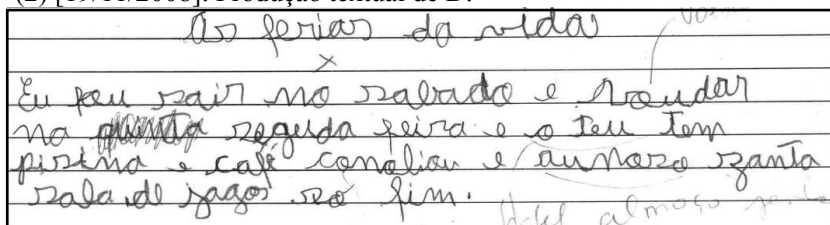 (2) [19/11/2008]. Produção textual de D.
As ferias da vida
x
Eu fou sair no sabado e voudar
na seguda feira e o teu tem
pisina e café conaliou e aumoso zanta
sala de jagos so fim.
almoço